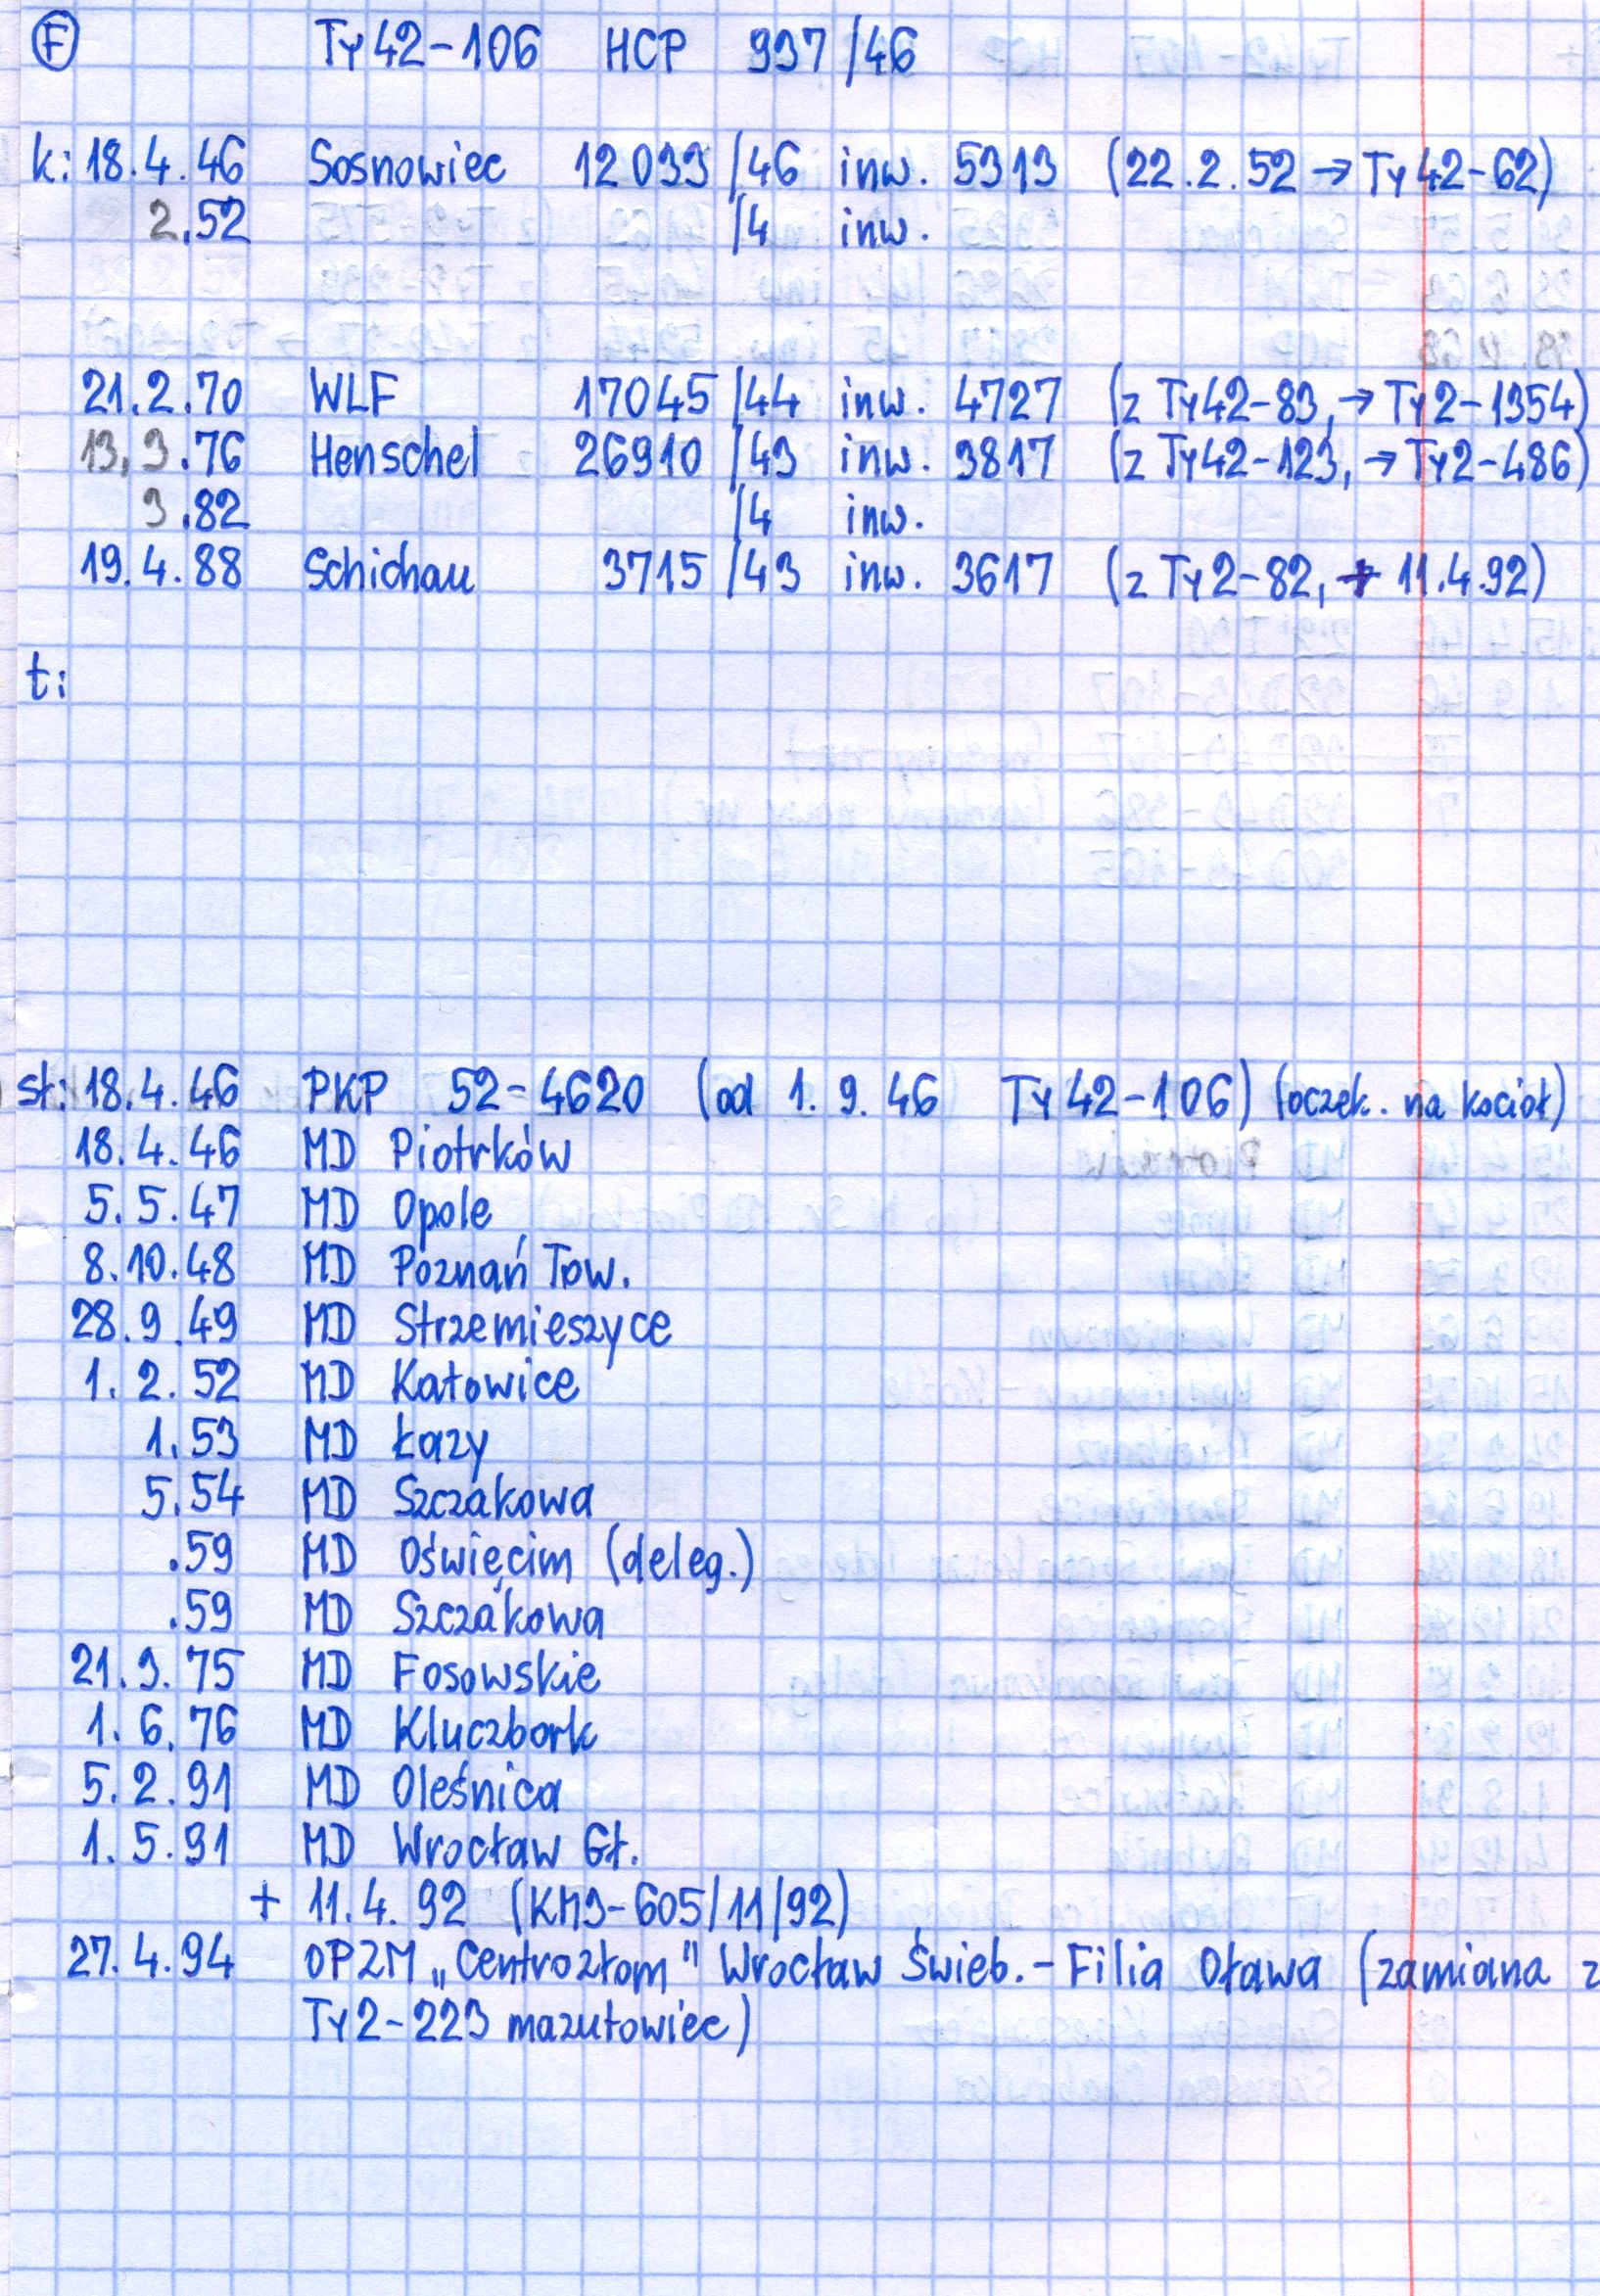 F Ty42-106 HCP 997/46
k: 18.4.46 Sosnowiec 12033/46 inw. 5313 (22.2.52 → Ty42-62)
2.52 /4 inw.
21.2.70 WLF 17045/44 inw. 4727 (z Ty42-83, → Ty2-1354)
13.3.76 Henschel 26910/43 inw. 3817 (z Ty42-123, → Ty2-486)
3.82 /4 inw.
19.4.88 Schichau 3715/43 inw. 3617 (z Ty2-82, + 11.4.92)
t:
st: 18.4.46 PKP 52-4620 (od 1.9.46 Ty42-106) (oczek. na kocioł)
18.4.46 MD Piotrków
5.5.47 MD Opole
8.10.48 MD Poznań Tow.
28.9.49 MD Strzemieszyce
1.2.52 MD Katowice
1.53 MD Łazy
5.54 MD Szczakowa
.59 MD Oświęcim (deleg.)
.59 MD Szczakowa
21.3.75 MD Fosowskie
1.6.76 MD Kluczbork
5.2.91 MD Oleśnica
1.5.91 MD Wrocław Gł.
+ 11.4.92 (KM3-605/11/92)
27.4.94 OPZM „Centrozłom" Wrocław Świeb.-Filia Oława (zamiana z
Ty2-223 mazutowiec)